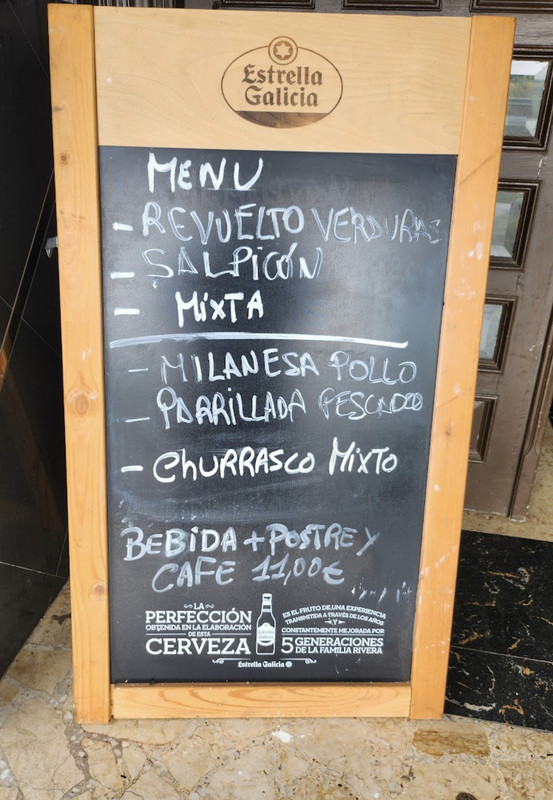 Estrella
Galicia
MENU
- REVUELTO VERDURAS
- SALPICÓN
- MiXTA
- MILANESA POLLO
- PARRILLADA PESCADO
- ChURRASCO MiXTO
BEBiDA + POSTRE Y
CAFE 11,00€
LA
PERFECCIÓN
OBTENIDA EN LA ELABORACIÓN
DE ESTA
CERVEZA
ES EL FRUTO DE UNA EXPERIENCIA
TRANSMITIDA A TRAVÉS DE LOS AÑOS
Y
CONSTANTEMENTE MEJORADA POR
5 GENERACIONES
DE LA FAMILIA RIVERA
Estrella Galicia